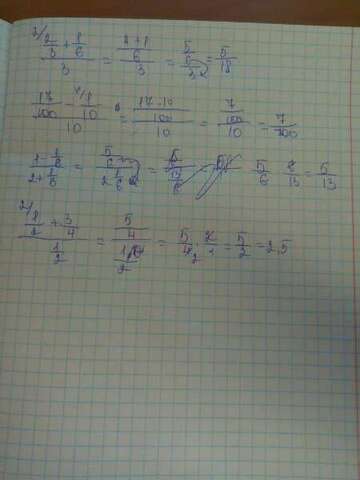 2/ (2/3 + 1/6)/3 = ((4+1)/6)/3 = (5/6)/3 = 5/18
(17/100 - 1/10)/10 = ((17-10)/100)/10 = (7/100)/10 = 7/100
(1-1/6)/(2+1/6) = (5/6)/(2 1/6) = (5/6)/(13/6) = 5/6 · 6/13 = 5/13
2/ (1/2 + 3/4)/(1/2) = (5/4)/(1/2) = 5/4 · 2/1 = 5/2 = 2,5